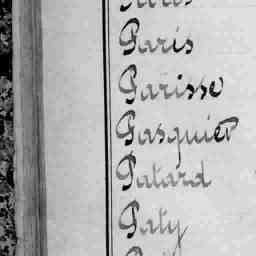 Paris
Parisse
Pasquier
Patard
Paty